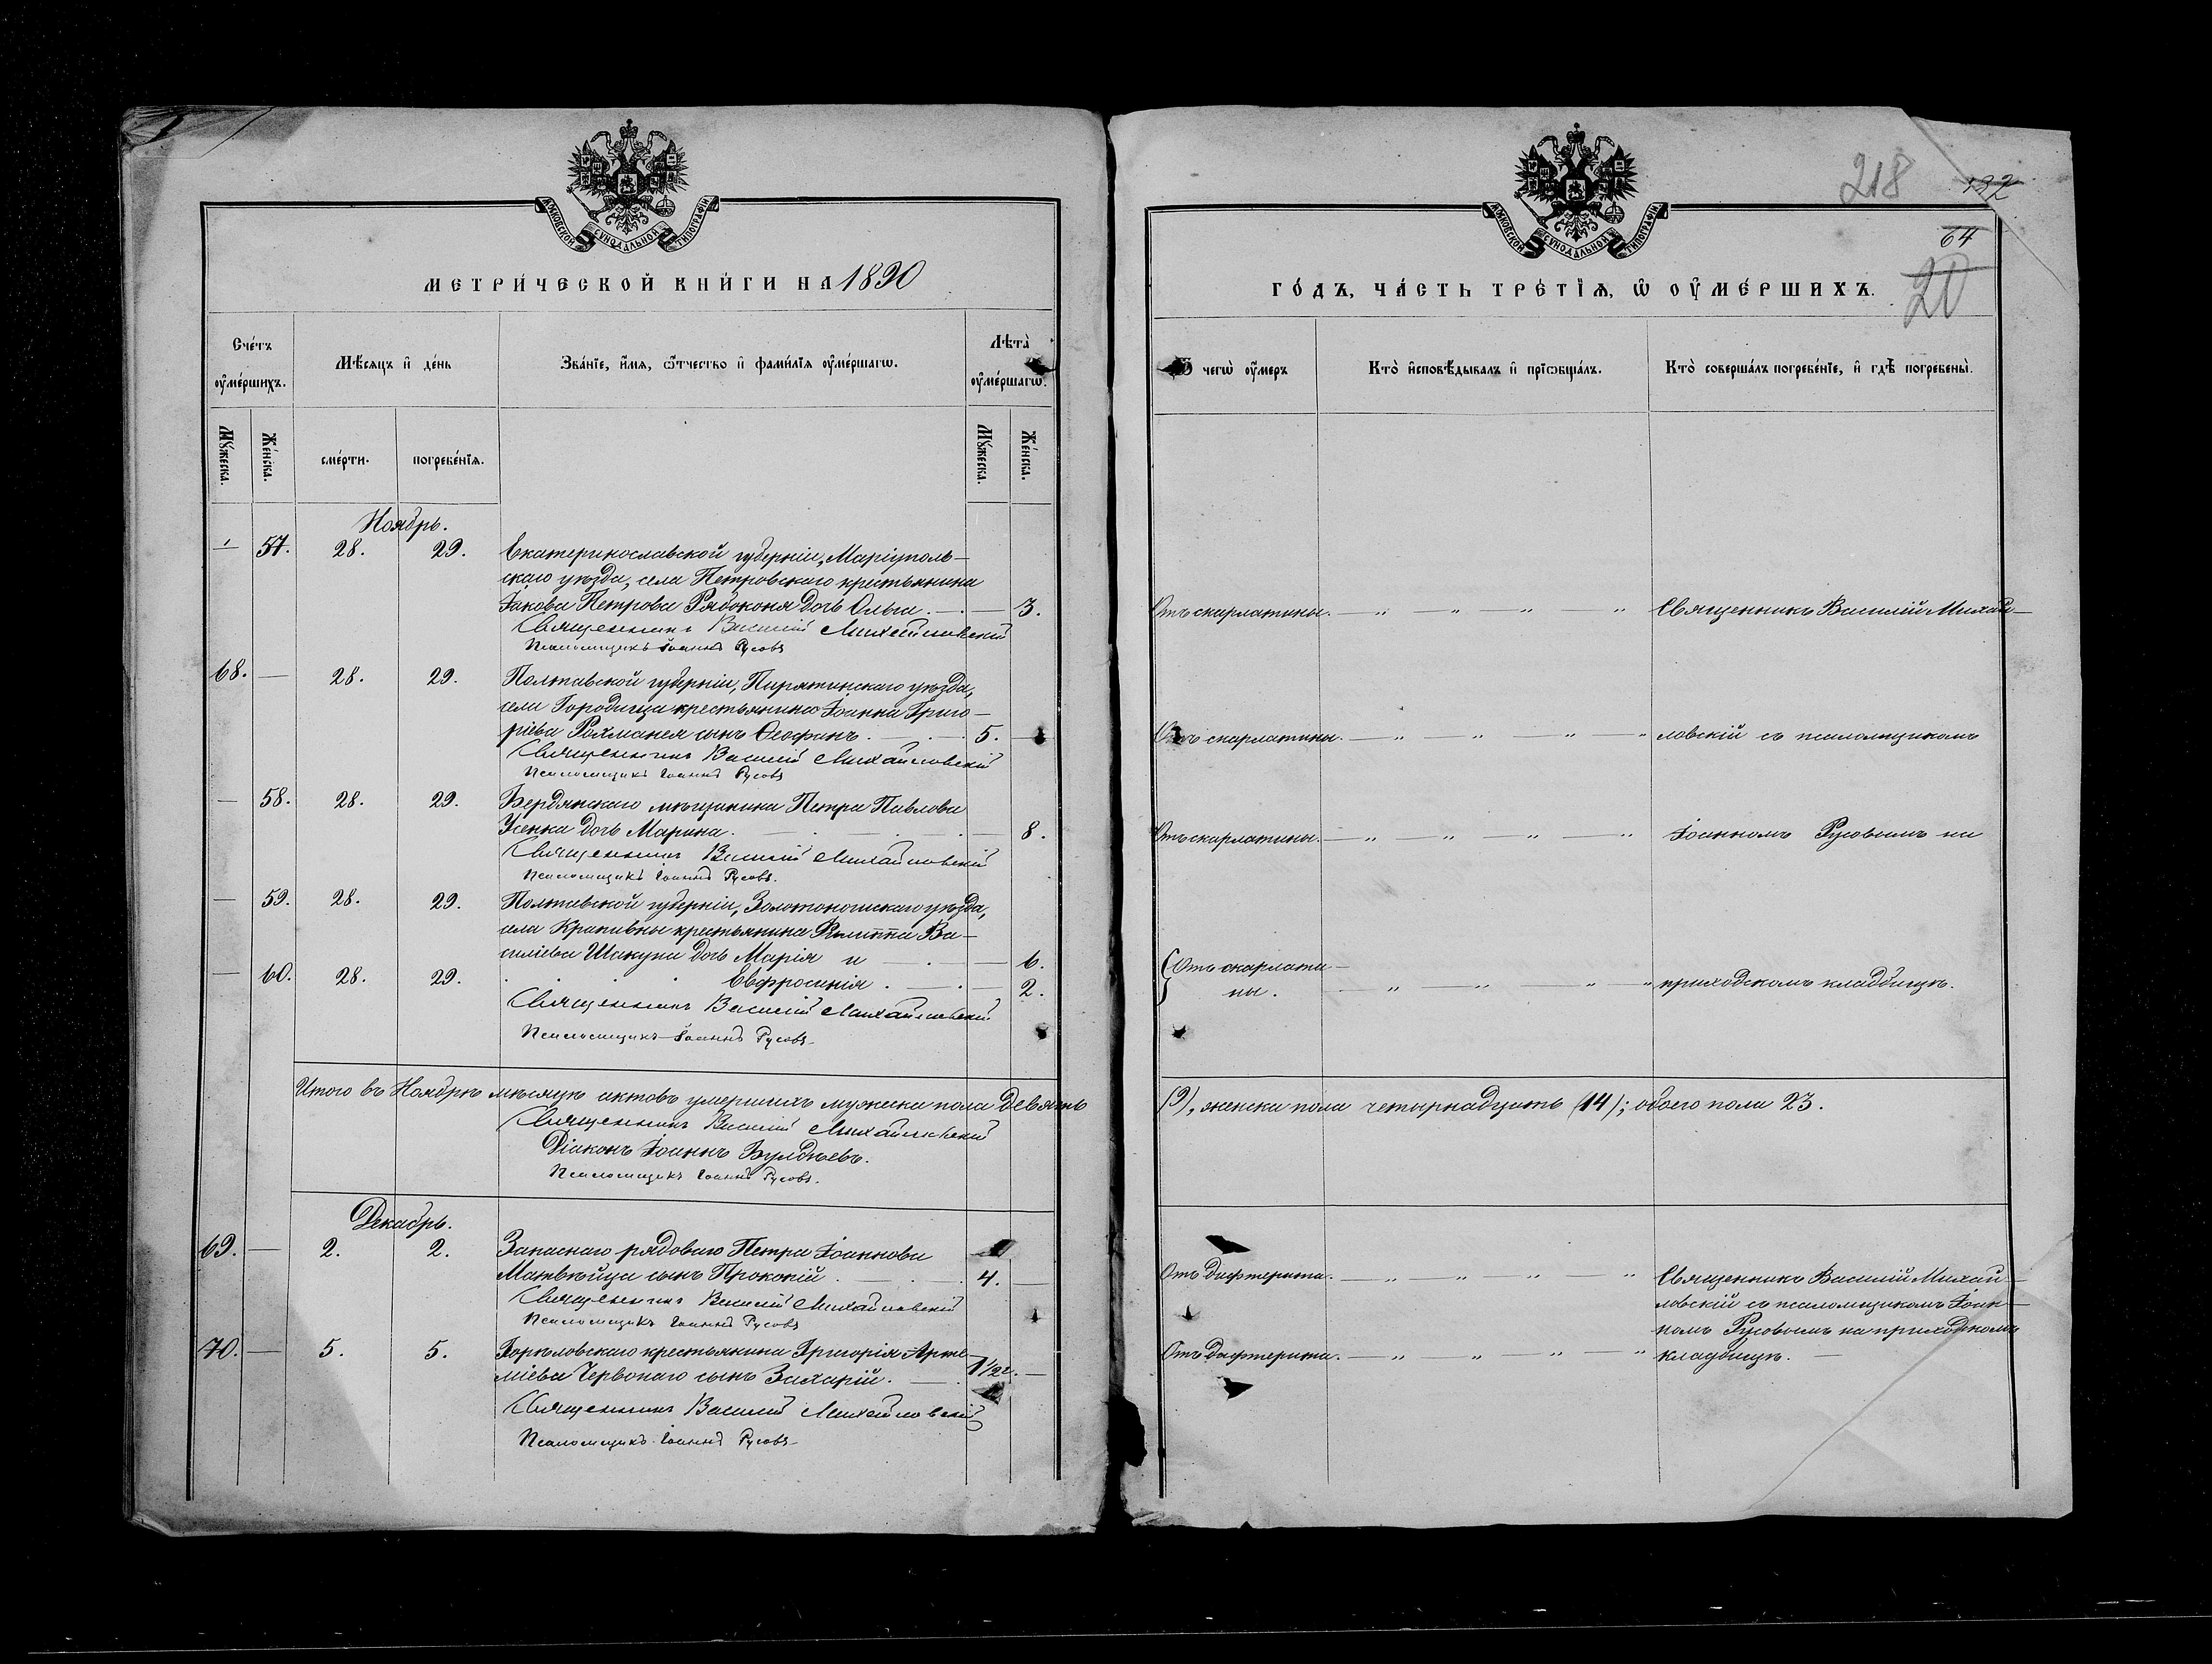 МОСКОВСКОЙ СѴНОДАЛЬНОЙ ТИПОГРАФІИ
МЕТРИ́ЧЕСКОЙ КНИ́ГИ НА 1890
Сче́тъ ᲂу҆ме́ршихъ.
Мѣ́сяцъ и҆ де́нь
Зва́нїе, и҆́мѧ, ѻ҆́тчество и҆ фамн́лїѧ ᲂу҆ме́ршагѡ.
Лѣ́та ᲂу҆ме́ршагѡ.
Мꙋ́жеска.
Же́нска.
сме́рти.
погребе́нїѧ.
Мꙋ́жеска.
Же́нска.
Ноябрь.
— 57. 28. 29. Екатеринославской губерніи, Маріуполь-
скаго уѣзда, села Петровскаго крестьянина
Іакова Петрова Рябоконя дочь Ольга. — 3.
Священникъ Василій Михайловскій
Псаломщикъ Іоаннъ Русовъ
68. — 28. 29. Полтавской губерніи, Пирятинскаго уѣзда,
села Городища крестьянина Іоанна Григо-
ріева Рохманея сынъ Ѳеофанъ. 5. —
Священникъ Василій Михайловскій
Псаломщикъ Іоаннъ Русовъ
— 58. 28. 29. Бердянскаго мѣщанина Петра Павлова
Усенка дочь Марина. — 8.
Священникъ Василій Михайловскій
Псаломщикъ Іоаннъ Русовъ.
— 59. 28. 29. Полтавской губерніи, Золотоношскаго уѣзда,
села Крапивны крестьянина Филиппа Ва-
силіева Шакуна дочь Марія и — 6.
— 60. 28. 29. Евфросинія. 2.
Священникъ Василій Михайловскій
Псаломщикъ Іоаннъ Русовъ
Итого въ Ноябрѣ мѣсяцѣ актовъ умершихъ мужеска пола девять
Священникъ Василій Михайловскій
Діаконъ Іоаннъ
Псаломщикъ Іоаннъ Русовъ.
Декабрь.
69. — 2. 2. Запаснаго рядоваго Петра Іоаннова
Матвѣйца сынъ Прокопій. 4. —
Священникъ Василій Михайловскій
Псаломщикъ Іоаннъ Русовъ
70. — 5. 5. Горѣловскаго крестьянина Григорія Арте-
міева Червонаго сынъ Захарій. 1 1/2 г. —
Священникъ Василій Михайловскій
Псаломщикъ Іоаннъ Русовъ
218
64
20
МОСКОВСКОЙ СѴНОДАЛЬНОЙ ТИПОГРАФІИ
ГО́ДЪ, ЧА́СТЬ ТРЕ́ТЇѦ, Ѡ҆ ОУ҆МЕ́РШИХЪ.
чегѡ̀ ᲂу҆́меръ
Кто̀ и҆сповѣ́дывалъ и҆ прїѡбща́лъ.
Кто̀ соверша́лъ погребе́нїе, и҆ гдѣ̀ погребены̀.
Отъ скарлатины. Священникъ Василій Михай-
Отъ скарлатины. ловскій съ псаломщикомъ
Отъ скарлатины. Іоанномъ Русовымъ на
Отъ скарлати-
ны. приходскомъ кладбищѣ.
(9), женска пола четырнадцать (14); обоего пола 23.
Отъ дифтерита. Священникъ Василій Михай-
ловскій съ псаломщикомъ Іоан-
номъ Русовымъ на приходскомъ
Отъ дифтерита. кладбищѣ.